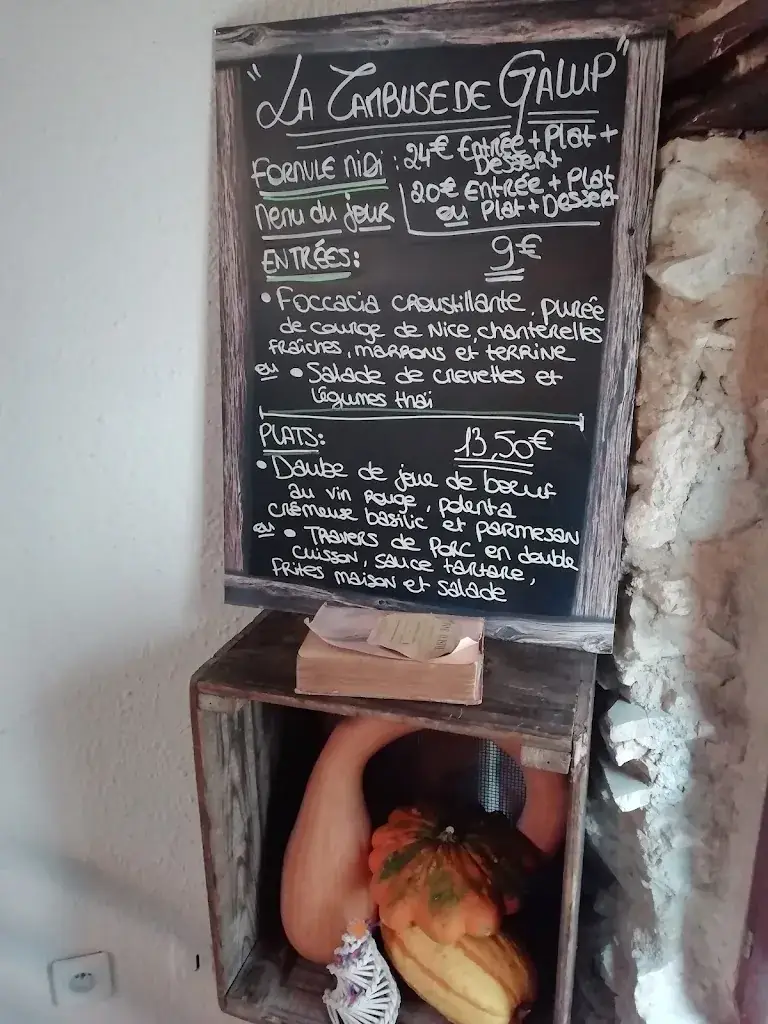 "LA CAMBUSE DE GALUP"
FORMULE MIDI : 24€ Entrée + Plat + Dessert
Menu du jour 20€ Entrée + Plat ou Plat + Dessert
ENTRÉES: 9€
• Foccacia croustillante, purée
de courge de Nice, chanterelles
fraîches, marrons et terrine
ou • Salade de crevettes et
légumes thaï
PLATS: 13,50€
• Daube de joue de boeuf
au vin rouge, polenta
crémeuse basilic et parmesan
ou • Travers de porc en double
cuisson, sauce tartare,
frites maison et salade